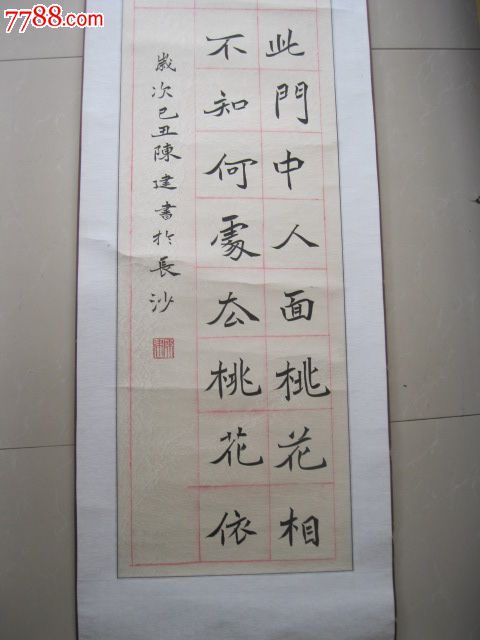 7788.com
此門中人面桃花相
不知何處厺桃花依
歲次己丑陳建書於長沙